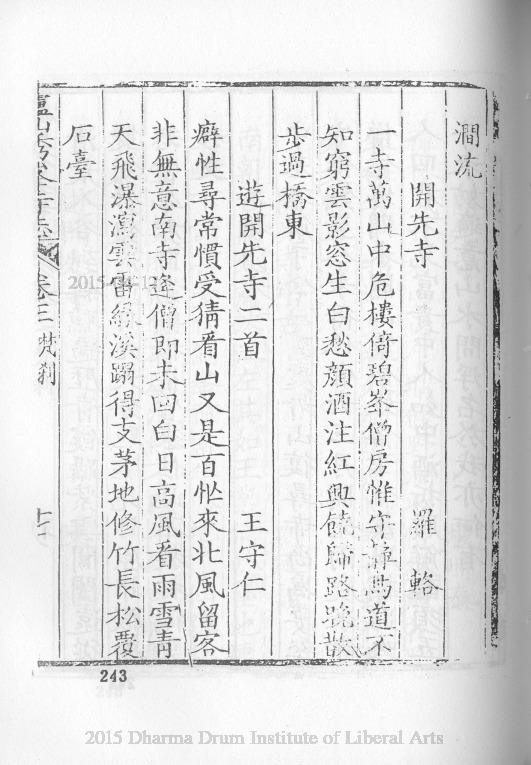 澗流
開先寺 羅輅
一寺萬山中危樓倚碧峯僧房惟守靜馬道不
知窮雲影窓生白愁顔酒注紅興饒歸路晚散
步過橋東
遊開先寺二首 王守仁
癖性尋常慣受猜看山又是百忙來北風留客
非無意南寺逢僧即未回白日高風看雨雪青
天飛瀑瀉雲雷緣溪蹋得支茅地修竹長松覆
石臺
卷三 梵刹
十七
243
2015 Dharma Drum Institute of Liberal Arts